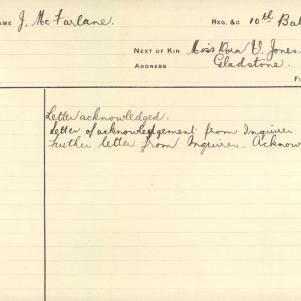 AME J. McFarlane. REG. &C 10th Bat
NEXT OF KIN Miss Dora V. Jones.
ADDRESS Gladstone.
F
Letter acknowledged.
Letter of acknowledgement from Inquirer
Further letter from Inquirer. Acknow